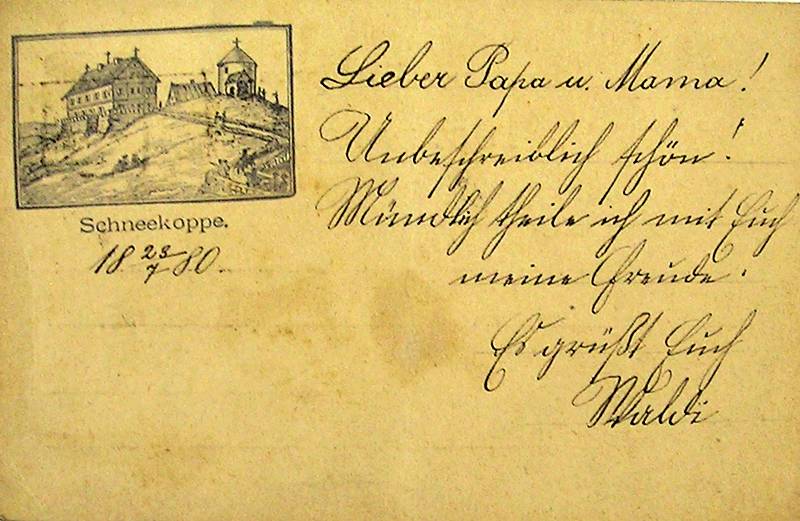 Schneekoppe.
18 23/7 80.
Lieber Papa u. Mama!
Unbeschreiblich schön!
Mündlich theile ich mit Euch
meine Freude.
Es grüßt Euch
Waldi